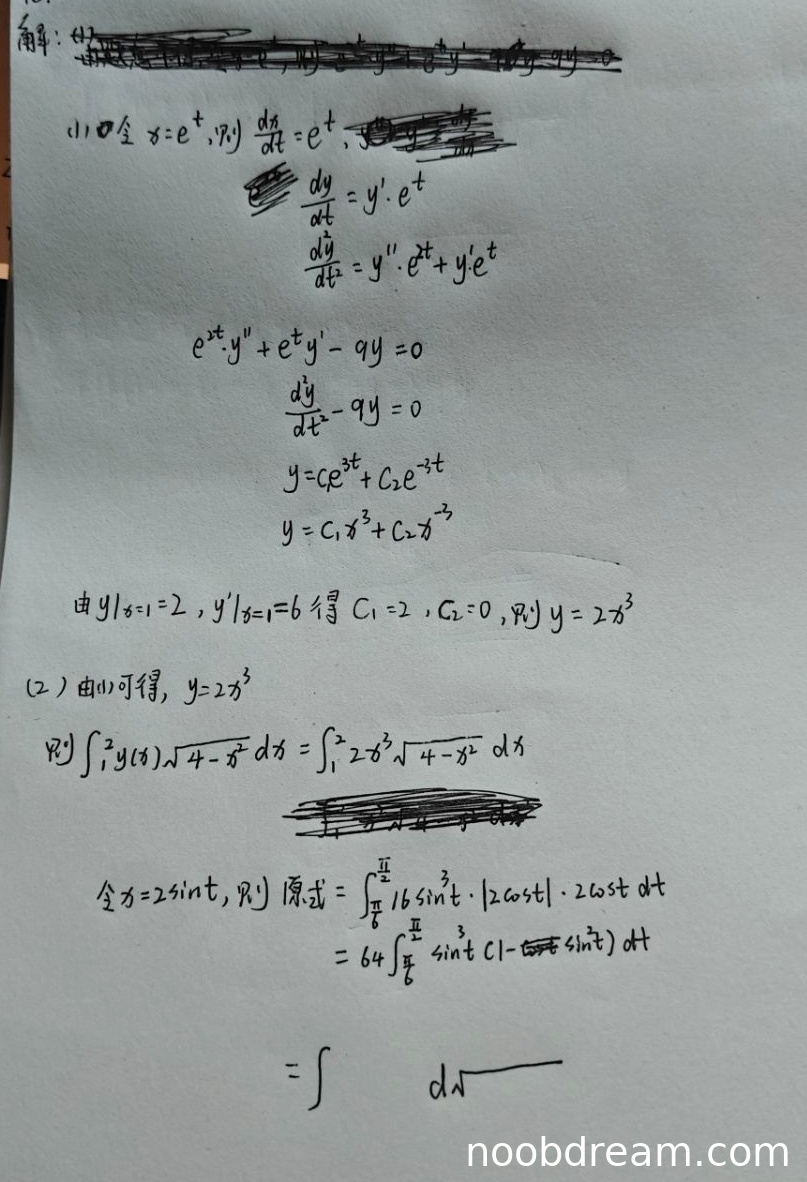 解:
(1) 令 x=e^t, 则 dx/dt = e^t,
dy/dt = y'·e^t
d²y/dt² = y''·e^{2t} + y'·e^t
e^{2t}·y'' + e^t y' - 9y = 0
d²y/dt² - 9y = 0
y = C₁e^{3t} + C₂e^{-3t}
y = C₁x³ + C₂x^{-3}
由 y|x=1 = 2, y'|x=1 = 6 得 C₁=2, C₂=0, 则 y = 2x³
(2) 由(1)可得, y=2x³
则 ∫₁² y(x)√(4-x²) dx = ∫₁² 2x³√(4-x²) dx
令 x=2sint, 则 原式 = ∫_{π/6}^{π/2} 16sin³t·|2cost|·2cost dt
= 64∫_{π/6}^{π/2} sin³t (1-sin²t) dt
= ∫ d√
noobdream.com